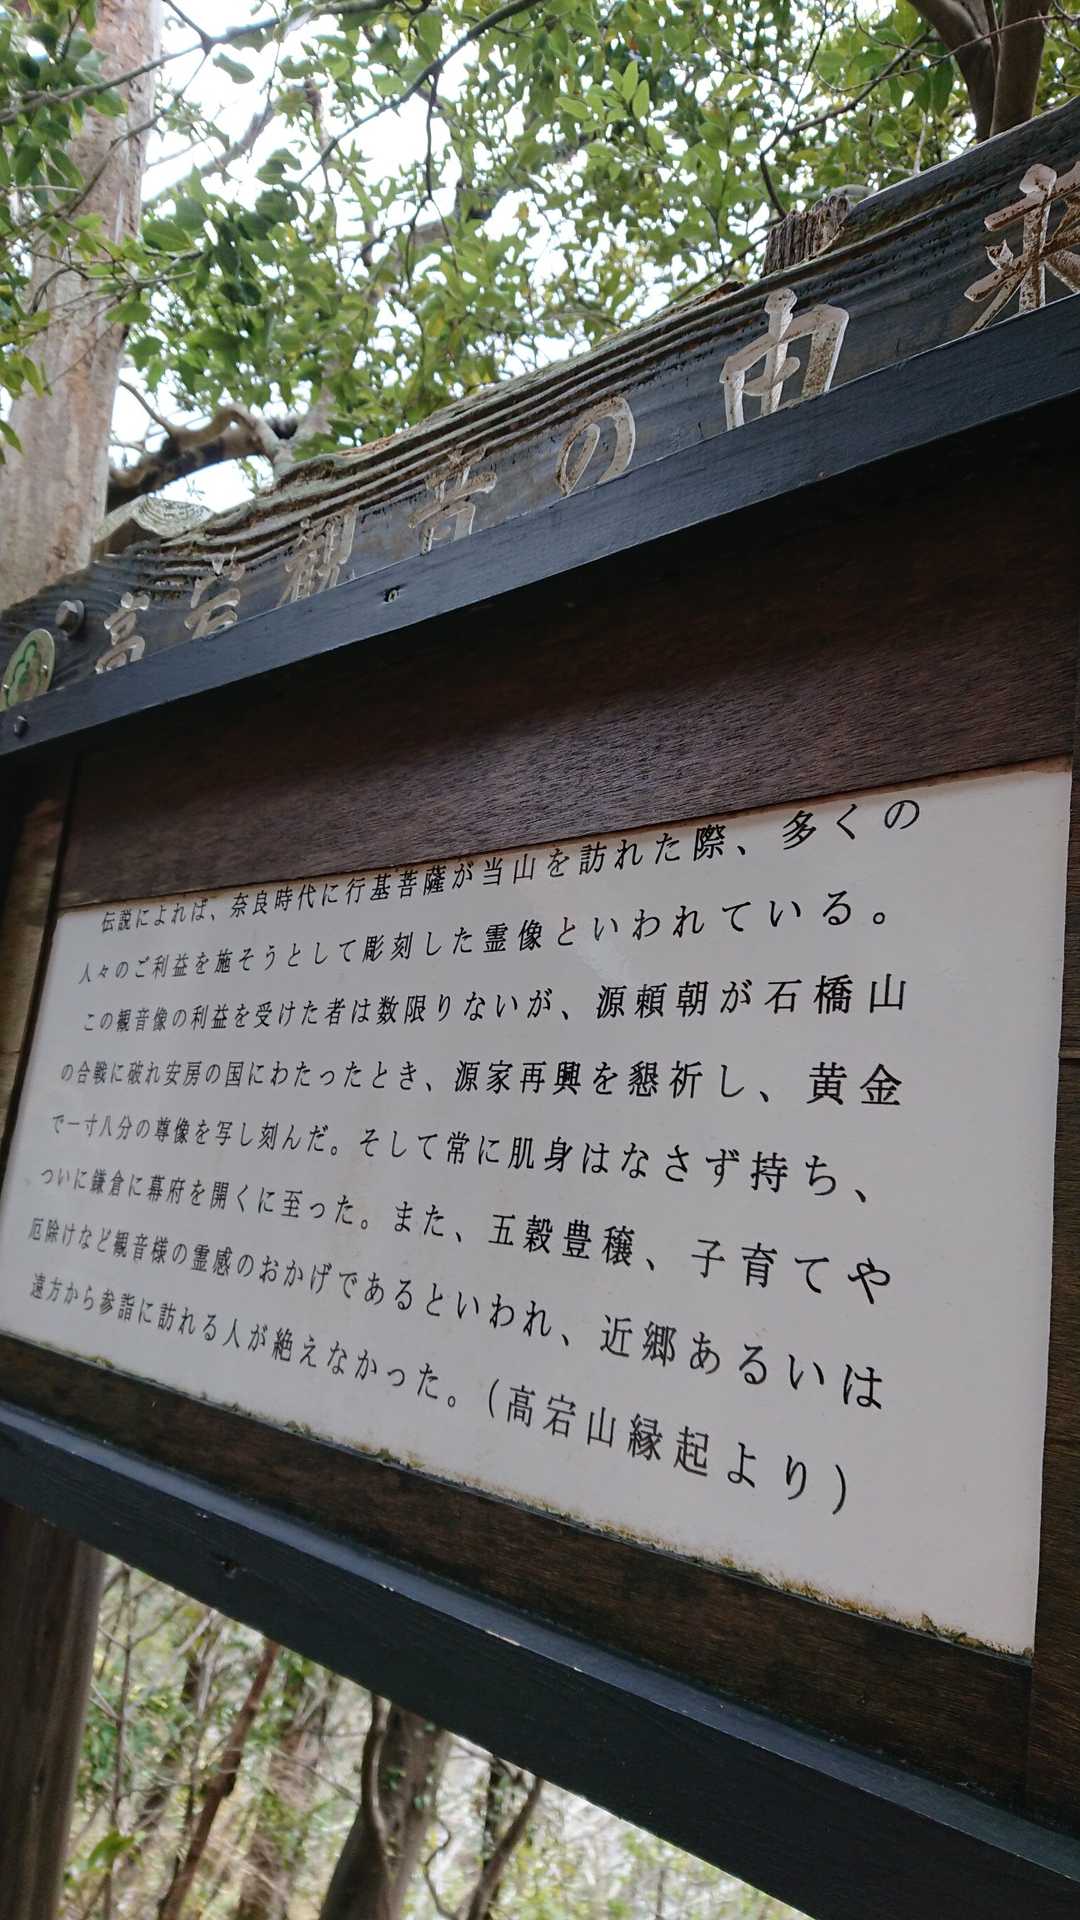 高宕観音の由来
伝説によれば、奈良時代に行基菩薩が当山を訪れた際、多くの
人々のご利益を施そうとして彫刻した霊像といわれている。
この観音像の利益を受けた者は数限りないが、源頼朝が石橋山
の合戦に破れ安房の国にわたったとき、源家再興を懇祈し、黄金
で一寸八分の尊像を写し刻んだ。そして常に肌身はなさず持ち、
ついに鎌倉に幕府を開くに至った。また、五穀豊穣、子育てや
厄除けなど観音様の霊感のおかげであるといわれ、近郷あるいは
遠方から参詣に訪れる人が絶えなかった。(高宕山縁起より)